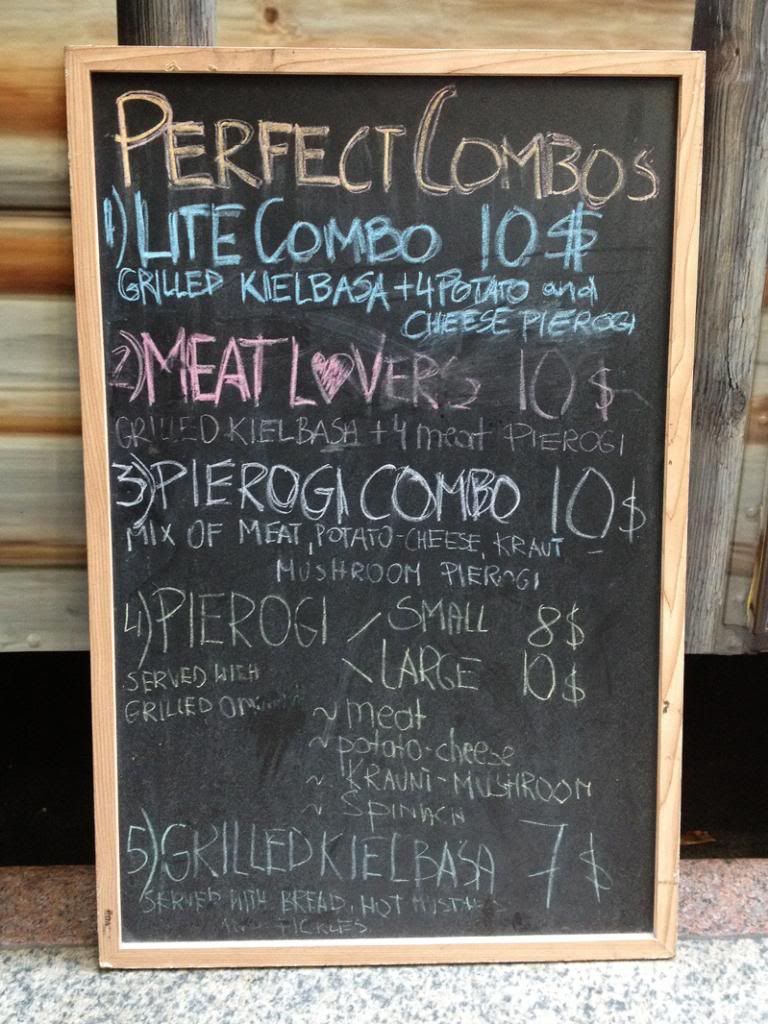 PERFECT COMBOS
1) LITE COMBO 10$
GRILLED KIELBASA + 4 POTATO and
CHEESE PIEROGI
2) MEAT L♥VERS 10$
GRILLED KIELBASA + 4 meat PIEROGI
3) PIEROGI COMBO 10$
MIX OF MEAT, POTATO-CHEESE, KRAUT
MUSHROOM PIEROGI
4) PIEROGI / SMALL 8$
\ LARGE 10$
SERVED WITH
GRILLED
~ meat
~ potato-cheese
~ KRAUNT-MUSHROOM
~ SPINACH
5) GRILLED KIELBASA 7$
SERVED WITH BREAD, HOT
AND PICKLES